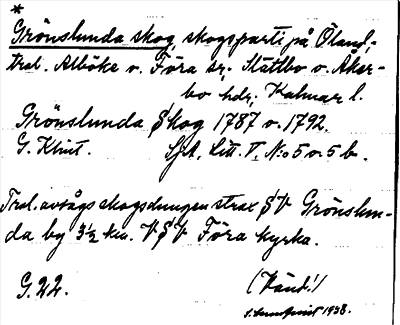 *
Grönslunda skog, skogsparti på Öland,
trol. Alböke o. Föra sr. Slättbo o. Åker-
bo hdr, Kalmar l.
Grönslunda Skog 1787 o. 1792.
G. Klint. Sjk. Litt. V. No: 5 o. 5 b.
Trol. avsågs skogsdungen strax SV Grönslun-
da by 3½ km. VSV Föra kyrka.
G. 22. (Känd!)
S. Lundqvist 1938.